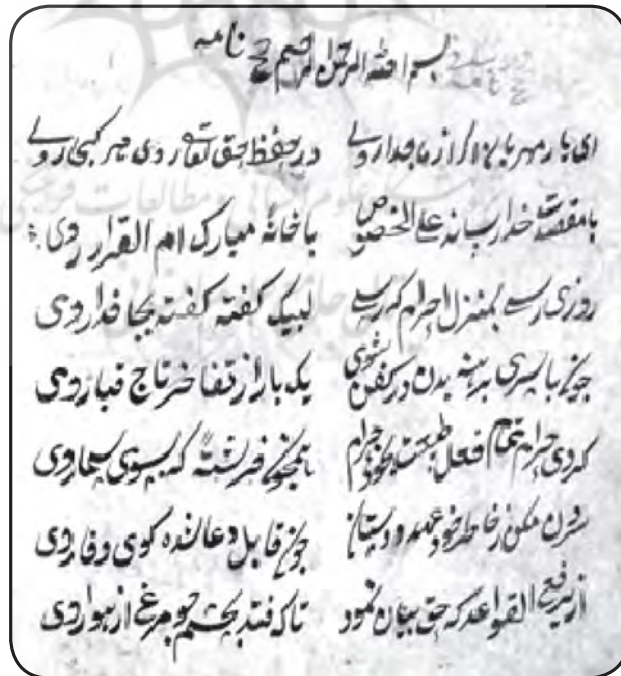 بسم الله الرحمن الرحیم حج نامه
ای یار مهربان اگر از ما جدا روی در حفظ حق تعالی روی هر کجا روی
با مقصدت خدا رساند علی الخصوص با خانهٔ مبارک ام القرا روی
روزی رسی بمنزل احرام که رسی لبیک گفته گفته بجا خدا روی
چون با سری برهنه بدن در کفن شوی یکبار از تفاخر تاج قبا روی
کردی حرام تمام فعل طبیعت بخود حرام همچون فرشته که بسوی سما روی
بیرون مکن ز خاطر خود عهد دوستان چون قابل دعا شده کوی وفا روی
از یرفع القواعد که حق بیان نمود تا کفتد بچشم چو مرغ از هوا روی